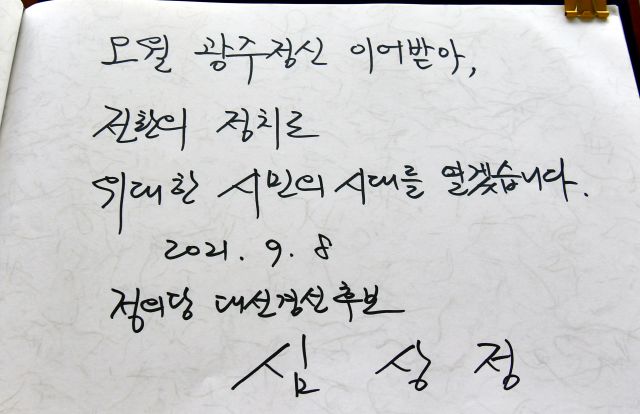 오월 광주정신 이어받아,
전환의 정치로
위대한 시민의 시대를 열겠습니다.
2021. 9. 8
정의당 대선경선후보
심 상 정